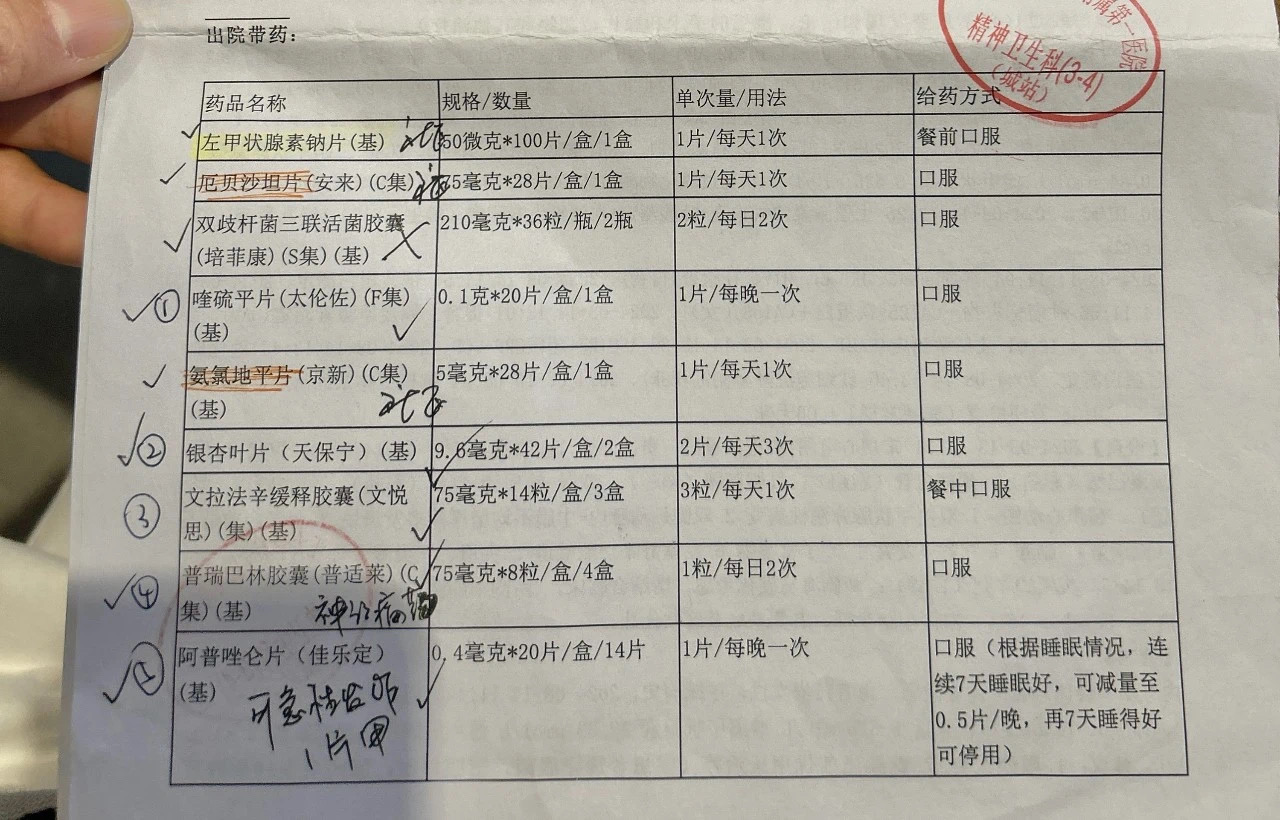 出院带药：
属第一医院
精神卫生科(3-4)
(城站)
药品名称 规格/数量 单次量/用法 给药方式
左甲状腺素钠片(基) 50微克*100片/盒/1盒 1片/每天1次 餐前口服
厄贝沙坦片(安来)(C集) 75毫克*28片/盒/1盒 1片/每天1次 口服
双歧杆菌三联活菌胶囊 210毫克*36粒/瓶/2瓶 2粒/每日2次 口服
(培菲康)(S集)(基)
① 喹硫平片(太伦佐)(F集) 0.1克*20片/盒/1盒 1片/每晚一次 口服
(基)
氨氯地平片(京新)(C集) 5毫克*28片/盒/1盒 1片/每天1次 口服
(基)
② 银杏叶片（天保宁）(基) 9.6毫克*42片/盒/2盒 2片/每天3次 口服
③ 文拉法辛缓释胶囊(文悦 75毫克*14粒/盒/3盒 3粒/每天1次 餐中口服
思)(集)(基)
④ 普瑞巴林胶囊(普适莱)(C 75毫克*8粒/盒/4盒 1粒/每日2次 口服
集)(基) 神经病
⑤ 阿普唑仑片（佳乐定） 0.4毫克*20片/盒/14片 1片/每晚一次 口服（根据睡眠情况，连
(基) 续7天睡眠好，可减量至
可急性发作 0.5片/晚，再7天睡得好
1片 可停用）